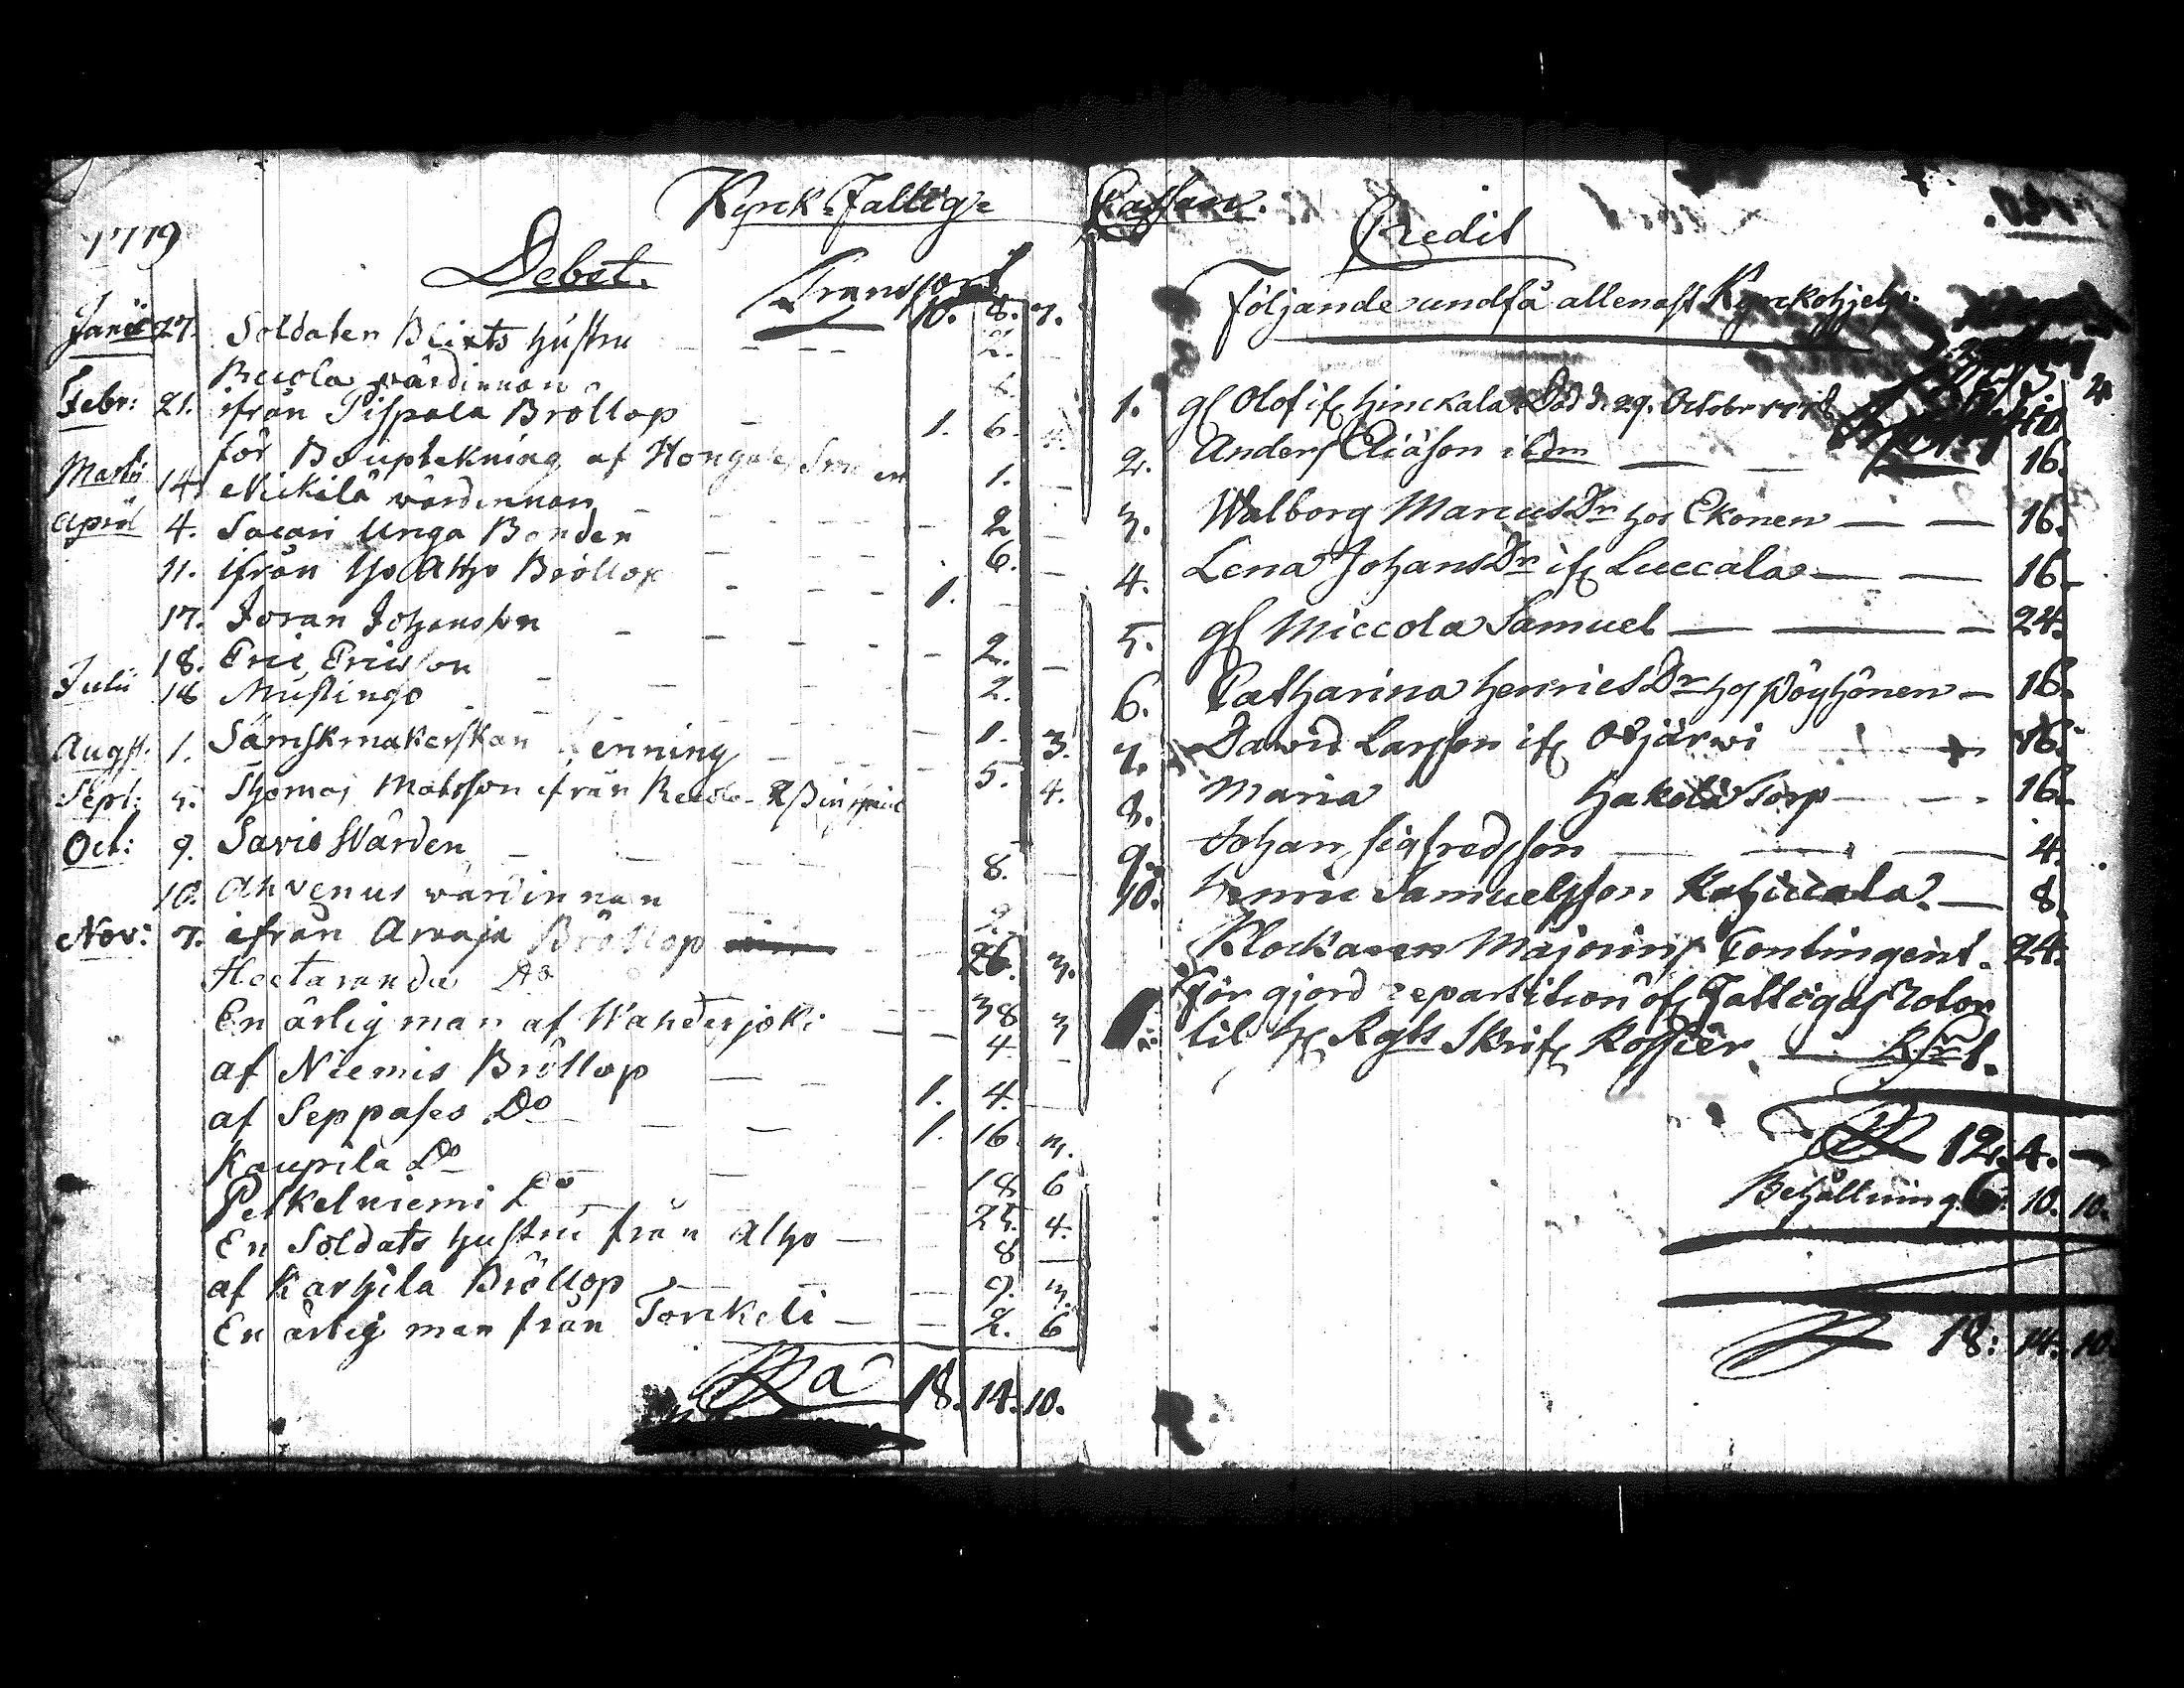 Kyrck-Fattig-Cassan.
1779
Debet. Transport 10. 8. 7.
Janü 27. Soldaten Blixts Hustru 2.
Rucola wärdinnan
Febr: 21. ifrån Pispala Bröllop 1. 6.
för Bouptekning af
Martii 14. Nickilä wärdinnan 1.
April 4. Sacari Unga Bonden 2
11. ifrån Yso Altho Bröllop 6.
17. Joran Johansson 1.
18. Eric Ericsson 2.
Julii 18 Mustingo 2.
Augst: 1. Sämskmakerskan Henning 1. 3.
Sept: 5. Thomas Matsson ifrån 5. 4.
Oct: 9. Savio Wärden 8.
10. Ahvenus wärdinnan 2.
Nov: 7. ifrån Arraja Bröllop 26. 3.
Heetaranda Do 38 3
En ärlig man af Wanderjoki 4
af Niemis Bröllop 1. 4.
af Seppases Do 1. 16. 3.
Kaupila Do 18 6
Pelkelniemi Do 25. 4.
En Soldats hustru från Altho 8
af Karhila Bröllop 9. 3.
En ärlig man från Torckeli 2. 6
18. 14. 10.
Credit
Följande undfå allenast Kyrckohjelp.
1. gl Olof if. Hinckala Död d. 29. Octobr 1778
2. Anders Eliäson ibdm 16.
3. Walborg MarcusDr hos Ekonen 16.
4. Lena JohansDr if. Luccala 16
5. gl Miccola Samuel 24.
6. Catharina HenricsDr hos Pöyhönen 16.
7. David Larsson if. Ojärwi 16.
8. Maria Hakola Torp 16.
9. Johan Sigfredsson 4.
10. Henric Samuelsson Kahiccala. 8.
Klockaren Majorins Contingent. 24.
För gjord repartition öf. Fattigas Rotor
til H. Rgts Skrif. 1.
12. 4.
Behållning 6. 10. 10.
18. 14. 10.